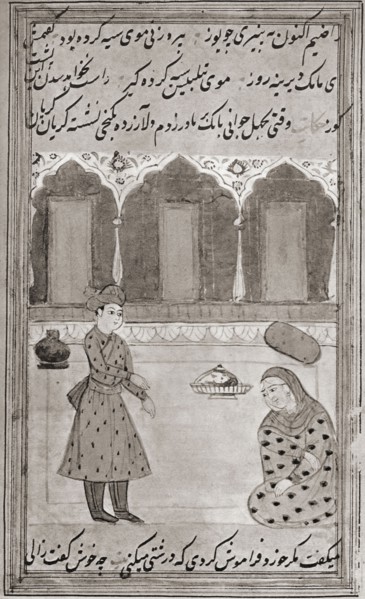 راضیم اکنون به پنیری چو یوز پیره زنی موی سیه کرده بود گفتمش
ای مامک دیرینه روز موی بتلبیس سیه کرده گیر راست نخواهد شدن این پشت
کوز حکایت وقتی بجهل جوانی بانگ بمادر زدم دلآزرده بکنجی نشسته گریان گریان
میگفت مگر فراموش کردی که درشتی میکنی چه خوش گفت زالی